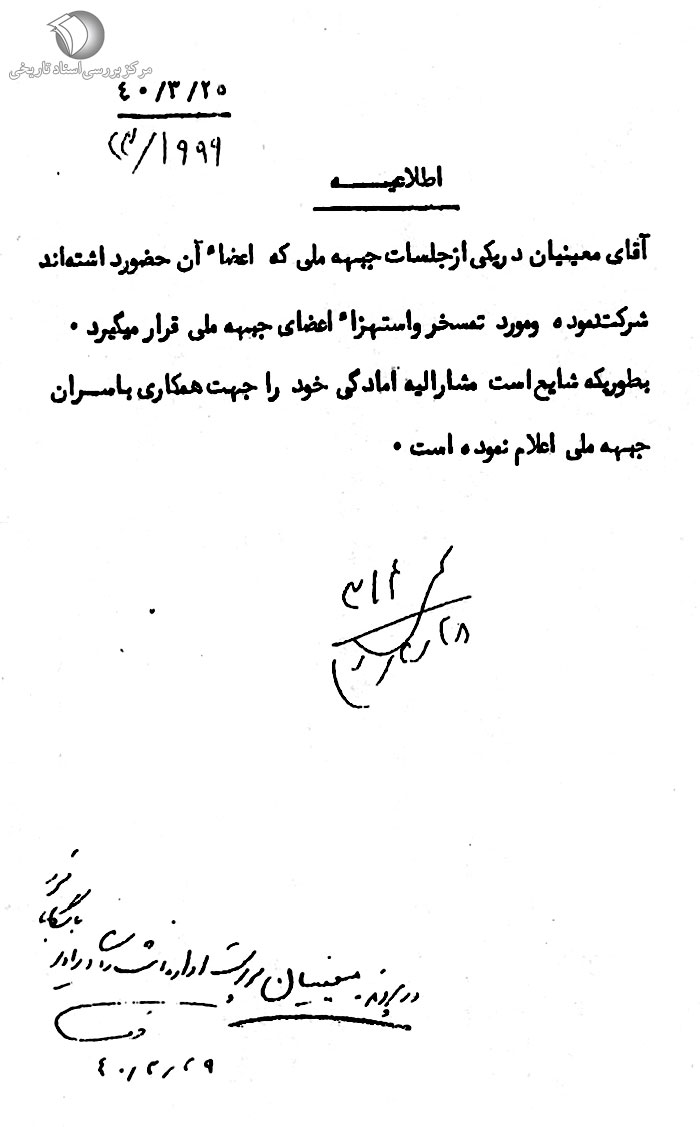 مرکز بررسی اسناد تاریخی
٤٠/٣/٢٥
١٩٩٦/
اطلاعیـــــه
آقای معینیان دریکی ازجلسات جبهه ملی که اعضاء آن حضورداشته‌اند
شرکتنموده ومورد تمسخر واستهزاء اعضای جبهه ملی قرار میگیرد ٠
بطوریکه شایع است مشارالیه آمادگی خود را جهت همکاری باسـران
جبهه ملی اعلام نموده است ٠
٢٨
بایگانی
در پرونده معینیان سرپرست اداره انتشارات و رادیو
٤٠/٣/٢٩